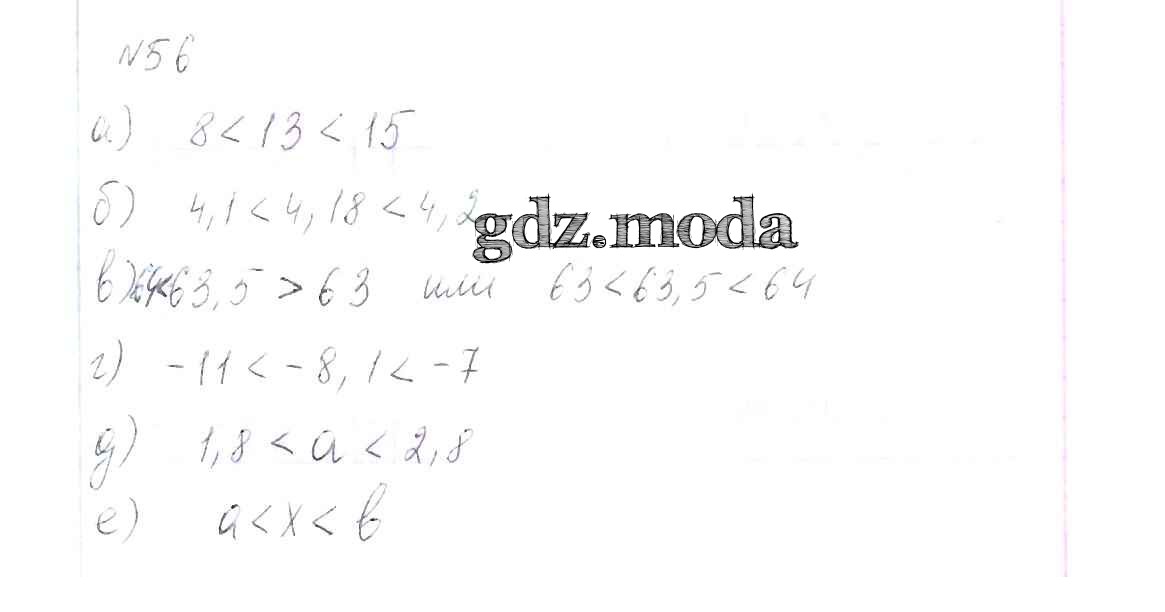 №56
а) 8 < 13 < 15
б) 4,1 < 4,18 < 4,2
gdz.moda
в) 64<63,5 > 63 или 63 < 63,5 < 64
г) -11 < -8,1 < -7
д) 1,8 < a < 2,8
е) a < x < b